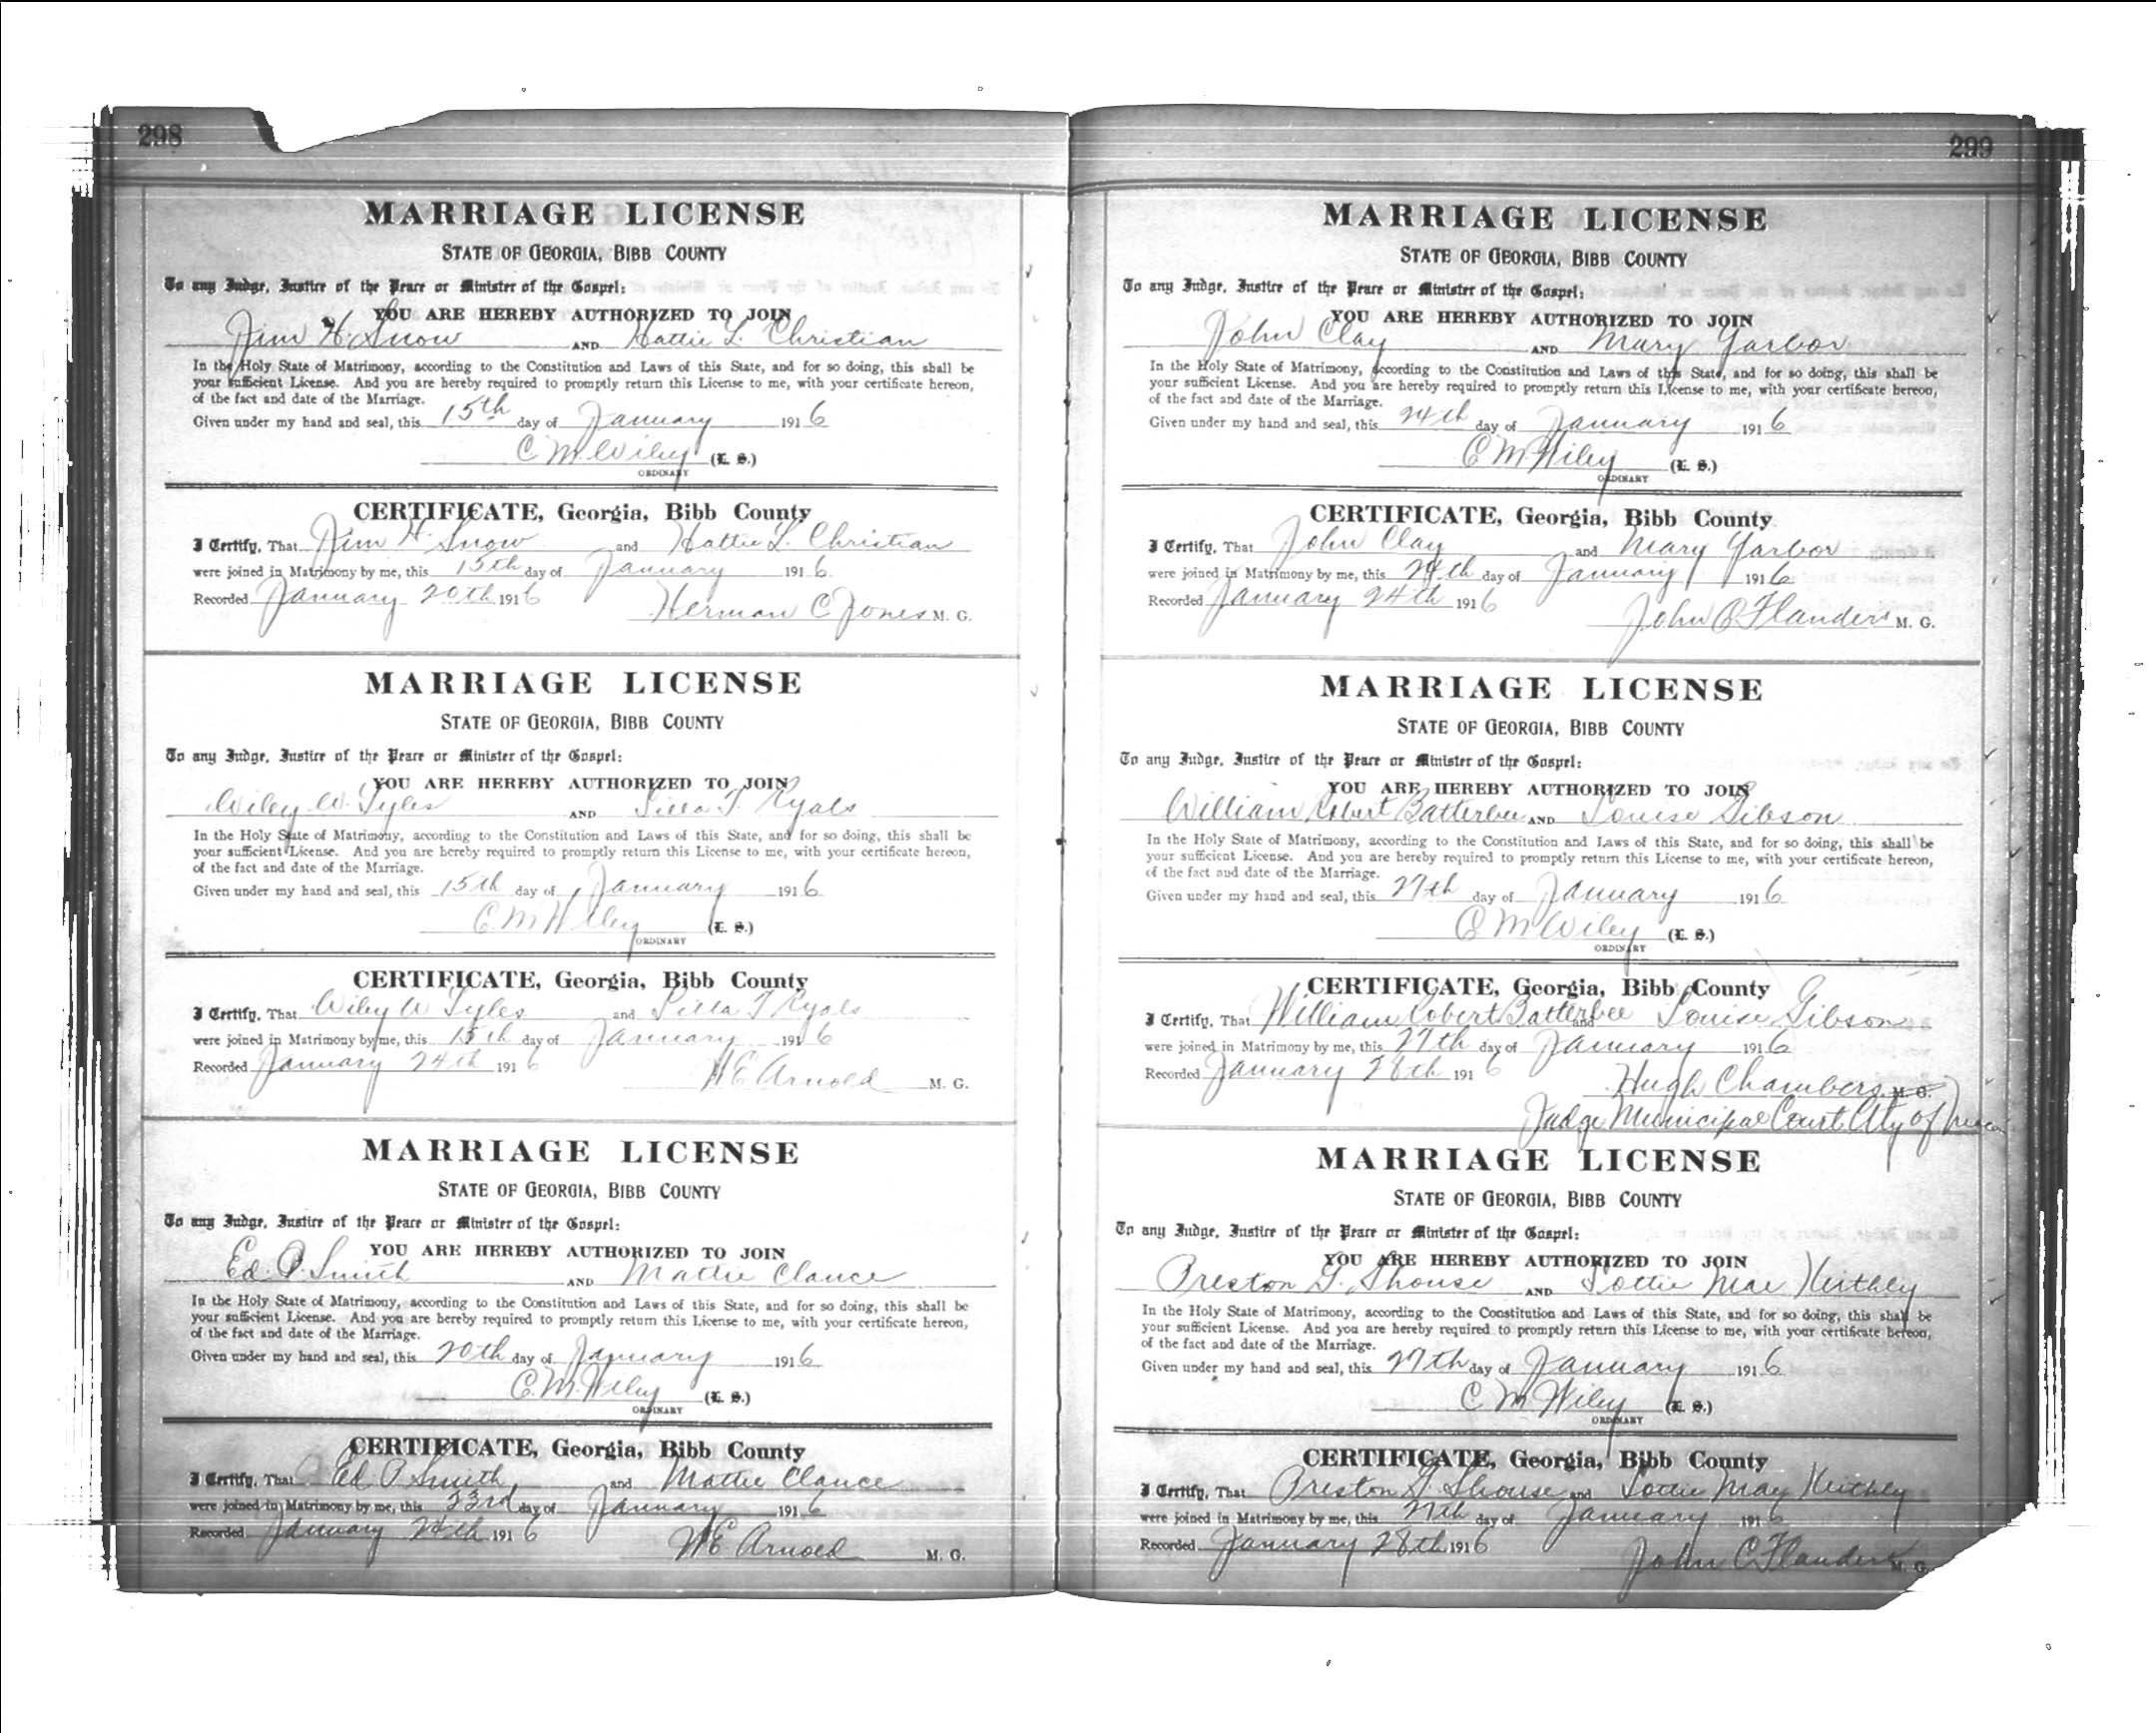 298
MARRIAGE LICENSE
STATE OF GEORGIA, BIBB COUNTY
To any Judge, Justice of the Peace or Minister of the Gospel:
YOU ARE HEREBY AUTHORIZED TO JOIN
Jim H. Snow AND Hattie L. Christian
In the Holy State of Matrimony, according to the Constitution and Laws of this State, and for so doing, this shall be
your sufficient License. And you are hereby required to promptly return this License to me, with your certificate hereon,
of the fact and date of the Marriage.
Given under my hand and seal, this 15th day of January 1916
C M Wiley (L. S.)
ORDINARY
CERTIFICATE, Georgia, Bibb County
I Certify, That Jim H. Snow and Hattie L. Christian
were joined in Matrimony by me, this 15th day of January 1916
Recorded January 20th 1916 Herman C Jones M. G.
MARRIAGE LICENSE
STATE OF GEORGIA, BIBB COUNTY
To any Judge, Justice of the Peace or Minister of the Gospel:
YOU ARE HEREBY AUTHORIZED TO JOIN
Wiley W. Lyles AND Lilla T. Ryals
In the Holy State of Matrimony, according to the Constitution and Laws of this State, and for so doing, this shall be
your sufficient License. And you are hereby required to promptly return this License to me, with your certificate hereon,
of the fact and date of the Marriage.
Given under my hand and seal, this 15th day of January 1916
C. M Wiley (L. S.)
ORDINARY
CERTIFICATE, Georgia, Bibb County
I Certify, That Wiley W Lyles and Lilla T Ryals
were joined in Matrimony by me, this 15th day of January 1916
Recorded January 24th 1916 W E Arnold M. G.
MARRIAGE LICENSE
STATE OF GEORGIA, BIBB COUNTY
To any Judge, Justice of the Peace or Minister of the Gospel:
YOU ARE HEREBY AUTHORIZED TO JOIN
Ed. P. Smith AND Mattie Clance
In the Holy State of Matrimony, according to the Constitution and Laws of this State, and for so doing, this shall be
your sufficient License. And you are hereby required to promptly return this License to me, with your certificate hereon,
of the fact and date of the Marriage.
Given under my hand and seal, this 20th day of January 1916
C. M. Wiley (L. S.)
ORDINARY
CERTIFICATE, Georgia, Bibb County
I Certify, That Ed P Smith and Mattie Clance
were joined in Matrimony by me, this 23rd day of January 1916
Recorded January 24th 1916 W E Arnold M. G.
299
MARRIAGE LICENSE
STATE OF GEORGIA, BIBB COUNTY
To any Judge, Justice of the Peace or Minister of the Gospel:
YOU ARE HEREBY AUTHORIZED TO JOIN
John Clay AND Mary Yarbor
In the Holy State of Matrimony, according to the Constitution and Laws of this State, and for so doing, this shall be
your sufficient License. And you are hereby required to promptly return this License to me, with your certificate hereon,
of the fact and date of the Marriage.
Given under my hand and seal, this 24th day of January 1916
C M Wiley (L. S.)
ORDINARY
CERTIFICATE, Georgia, Bibb County
I Certify, That John Clay and Mary Yarbor
were joined in Matrimony by me, this 24th day of January 1916
Recorded January 24th 1916 John C Flanders M. G.
MARRIAGE LICENSE
STATE OF GEORGIA, BIBB COUNTY
To any Judge, Justice of the Peace or Minister of the Gospel:
YOU ARE HEREBY AUTHORIZED TO JOIN
William Robert Batterbee AND Louise Gibson
In the Holy State of Matrimony, according to the Constitution and Laws of this State, and for so doing, this shall be
your sufficient License. And you are hereby required to promptly return this License to me, with your certificate hereon,
of the fact and date of the Marriage.
Given under my hand and seal, this 27th day of January 1916
C M Wiley (L. S.)
ORDINARY
CERTIFICATE, Georgia, Bibb County
I Certify, That William Robert Batterbee and Louise Gibson
were joined in Matrimony by me, this 27th day of January 1916
Recorded January 28th 1916 Hugh Chambers M. G.
Judge Municipal Court City of
MARRIAGE LICENSE
STATE OF GEORGIA, BIBB COUNTY
To any Judge, Justice of the Peace or Minister of the Gospel:
YOU ARE HEREBY AUTHORIZED TO JOIN
Preston G. Shouse AND Lottie Mae Keithley
In the Holy State of Matrimony, according to the Constitution and Laws of this State, and for so doing, this shall be
your sufficient License. And you are hereby required to promptly return this License to me, with your certificate hereon,
of the fact and date of the Marriage.
Given under my hand and seal, this 27th day of January 1916
C M Wiley (L. S.)
ORDINARY
CERTIFICATE, Georgia, Bibb County
I Certify, That Preston G. Shouse and Lottie May Keithley
were joined in Matrimony by me, this 27th day of January 1916
Recorded January 28th 1916 John C Flanders M. G.